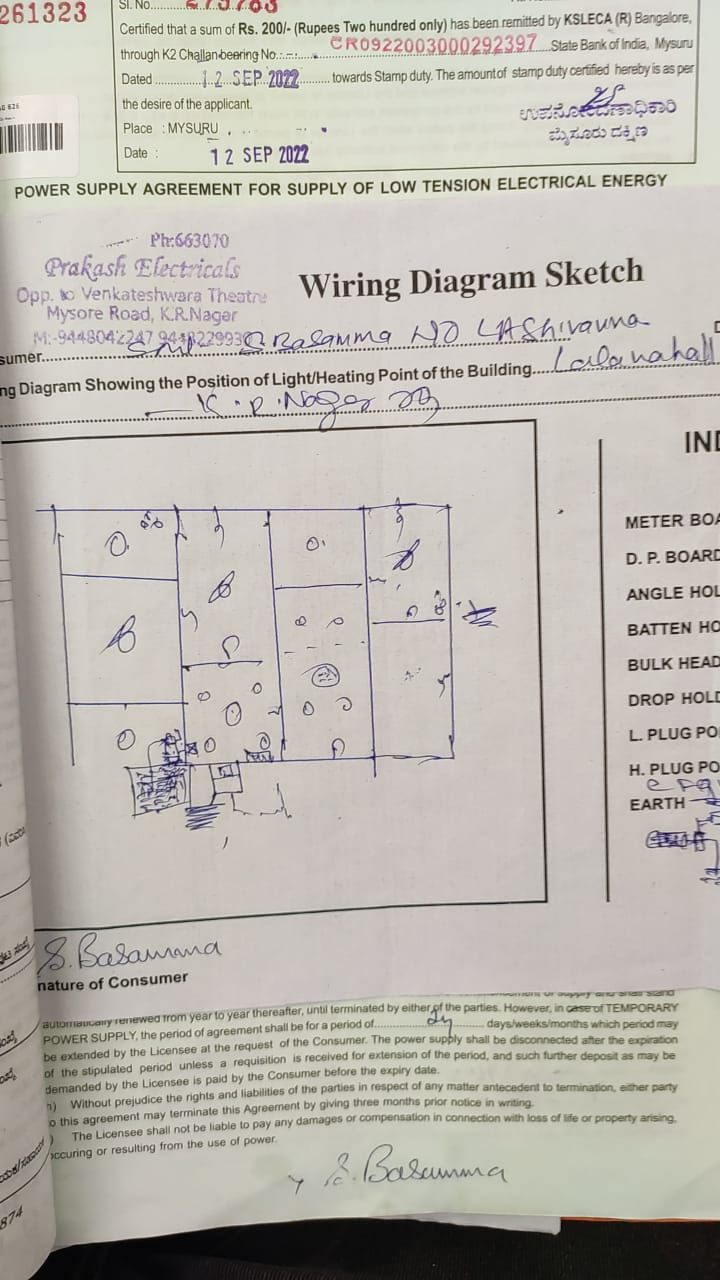 261323
Sl. No. 273783
Certified that a sum of Rs. 200/- (Rupees Two hundred only) has been remitted by KSLECA (R) Bangalore,
through K2 Challan bearing No.: CR0922003000292397 State Bank of India, Mysuru
Dated 12 SEP 2022 towards Stamp duty. The amount of stamp duty certified hereby is as per
the desire of the applicant.
Place : MYSURU
Date : 12 SEP 2022
ಮೈಸೂರು ದಕ್ಷಿಣ
POWER SUPPLY AGREEMENT FOR SUPPLY OF LOW TENSION ELECTRICAL ENERGY
Ph:663070
Prakash Electricals
Opp. to Venkateshwara Theatre
Mysore Road, K.R.Nagar
M:-9448042247
Wiring Diagram Sketch
sumer Smt S Basamma
ng Diagram Showing the Position of Light/Heating Point of the Building Lalanahall
K.R.Nagar
IND
METER BOA
D. P. BOARD
ANGLE HOL
BATTEN HO
BULK HEAD
DROP HOLD
L. PLUG PO
H. PLUG PO
EARTH
S. Basamma
nature of Consumer
automatically renewed from year to year thereafter, until terminated by either of the parties. However, in case of TEMPORARY
POWER SUPPLY, the period of agreement shall be for a period of days/weeks/months which period may
be extended by the Licensee at the request of the Consumer. The power supply shall be disconnected after the expiration
of the stipulated period unless a requisition is received for extension of the period, and such further deposit as may be
demanded by the Licensee is paid by the Consumer before the expiry date.
n) Without prejudice the rights and liabilities of the parties in respect of any matter antecedent to termination, either party
o this agreement may terminate this Agreement by giving three months prior notice in writing.
) The Licensee shall not be liable to pay any damages or compensation in connection with loss of life or property arising,
occuring or resulting from the use of power.
S. Basamma
874